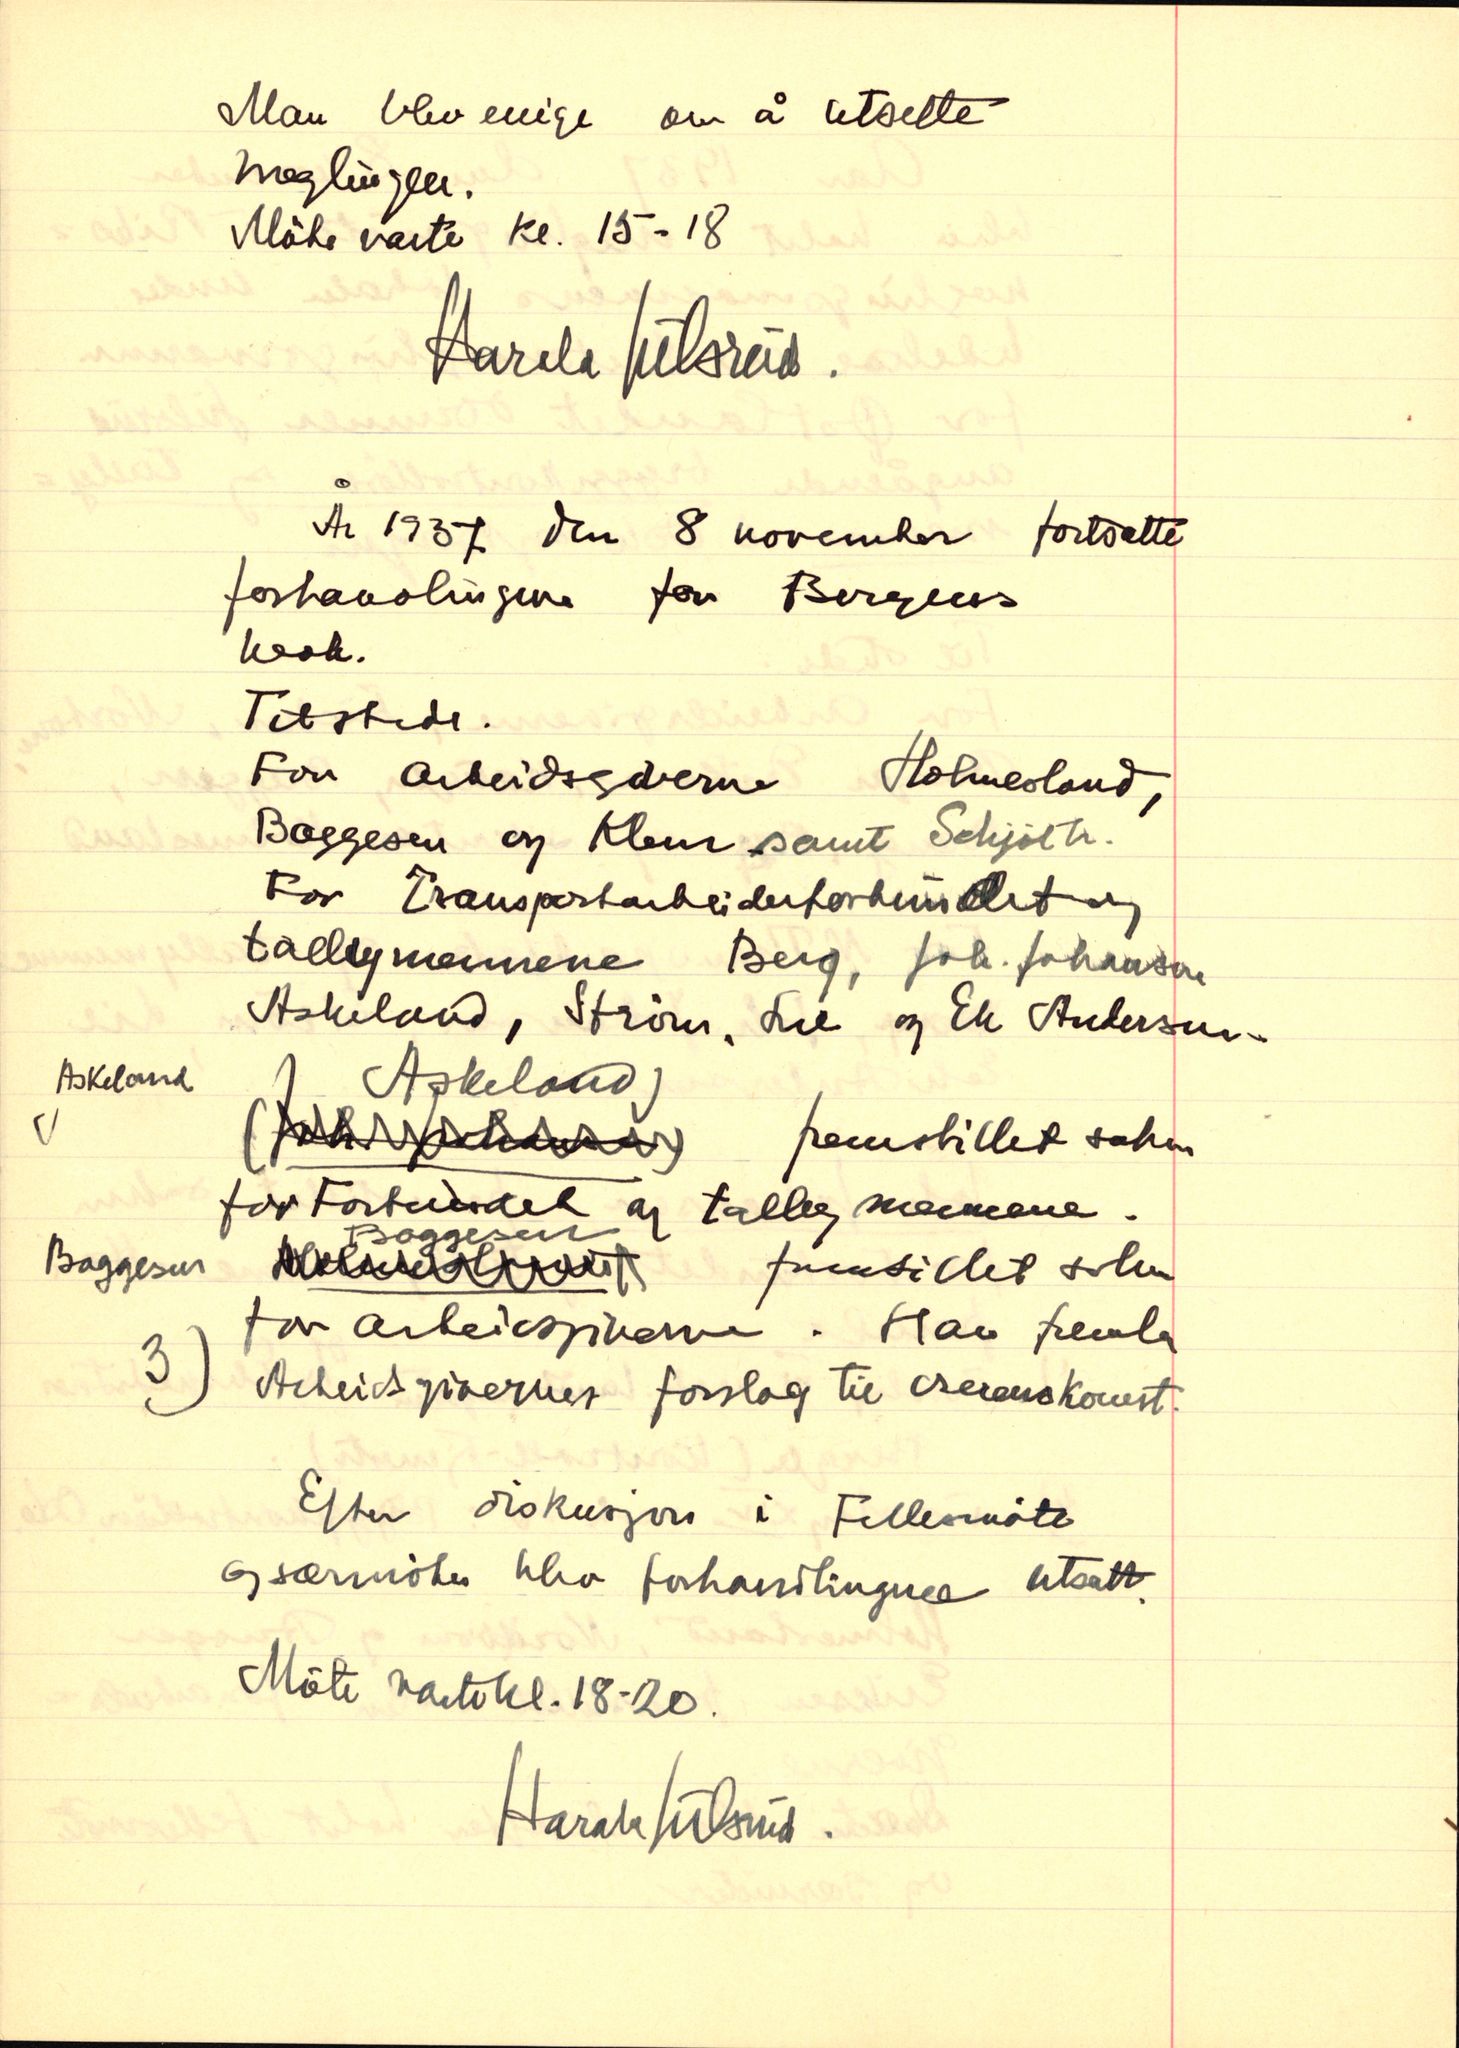 Man blev enige om å utsette
meglingen.
Møte varte kl. 15-18
Harald Gulsrud.
År 1937 den 8 november fortsatte
forhandlingene for Bergens
Tilstede.
For arbeidsgiverne Holmesland,
Baggesen og Klem samt Schjøth.
For Transportarbeiderforbundet og
tallymennene Berg, Joh. Johansen
Askeland, Strøm, Lie og Ek Andersen.
Askeland (Askeland)
fremstillet saken
for Forbundet og tallymennene.
Baggesen Baggesen fremstillet saken
for arbeidsgiverne. Han fremla
3) Arbeidsgivernes forslag til overenskomst.
Efter diskusjon i Fellesmøte
og særmøter blev forhandlingene utsatt.
Møte varte kl. 18-20.
Harald Gulsrud.